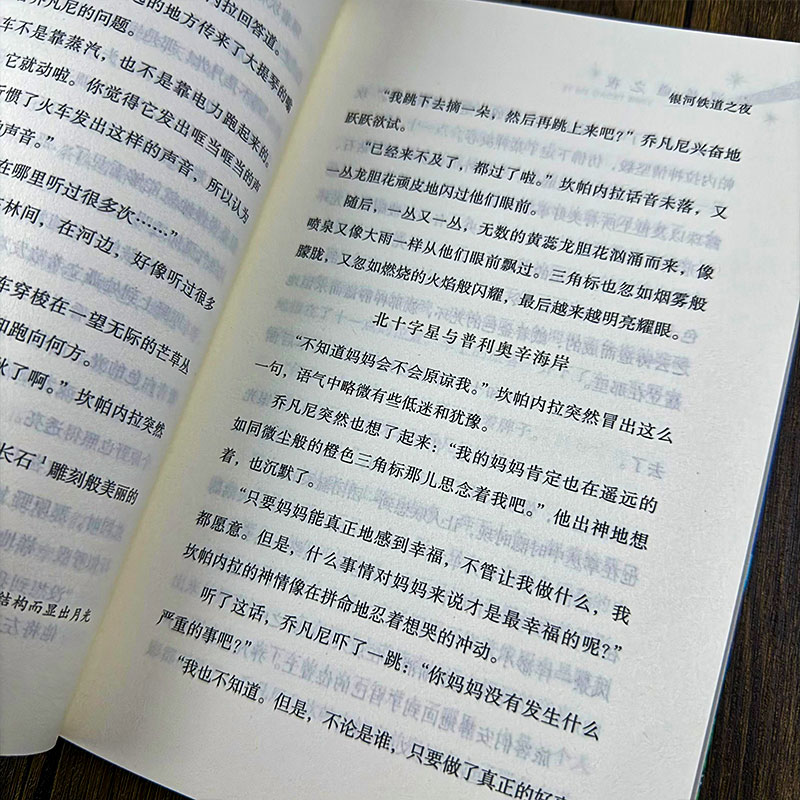 拉回答道。
的地方传来了大提琴的
乔凡尼的问题。
车不是靠蒸汽，也不是靠电力跑起来的。
它就动啦。你觉得它发出哐当哐当的声
习惯了火车发出这样的声音，所以认为
声音。”
在哪里听过很多次……”
林间，在河边，好像听过很多
车穿梭在一望无际的芒草丛
知跑向何方。
了啊。”坎帕内拉突然
长石¹雕刻般美丽的
结构而显出月光
银河铁道之夜
“我跳下去摘一朵，然后再跳上来吧？”乔凡尼兴奋地
跃跃欲试。
“已经来不及了，都过了啦。”坎帕内拉话音未落，又
一丛龙胆花顽皮地闪过他们眼前。
随后，一丛又一丛，无数的黄蕊龙胆花汹涌而来，像
喷泉又像大雨一样从他们眼前飘过。三角标也忽如烟雾般
朦胧，又忽如燃烧的火焰般闪耀，最后越来越明亮耀眼。
北十字星与普利奥辛海岸
“不知道妈妈会不会原谅我。”坎帕内拉突然冒出这么
一句，语气中略微有些低迷和犹豫。
乔凡尼突然也想了起来：“我的妈妈肯定也在遥远的
如同微尘般的橙色三角标那儿思念着我吧。”他出神地想
着，也沉默了。
“只要妈妈能真正地感到幸福，不管让我做什么，我
都愿意。但是，什么事情对妈妈来说才是最幸福的呢？”
坎帕内拉的神情像在拼命地忍着想哭的冲动。
听了这话，乔凡尼吓了一跳：“你妈妈没有发生什么
严重的事吧？”
“我也不知道。但是，不论是谁，只要做了真正的好